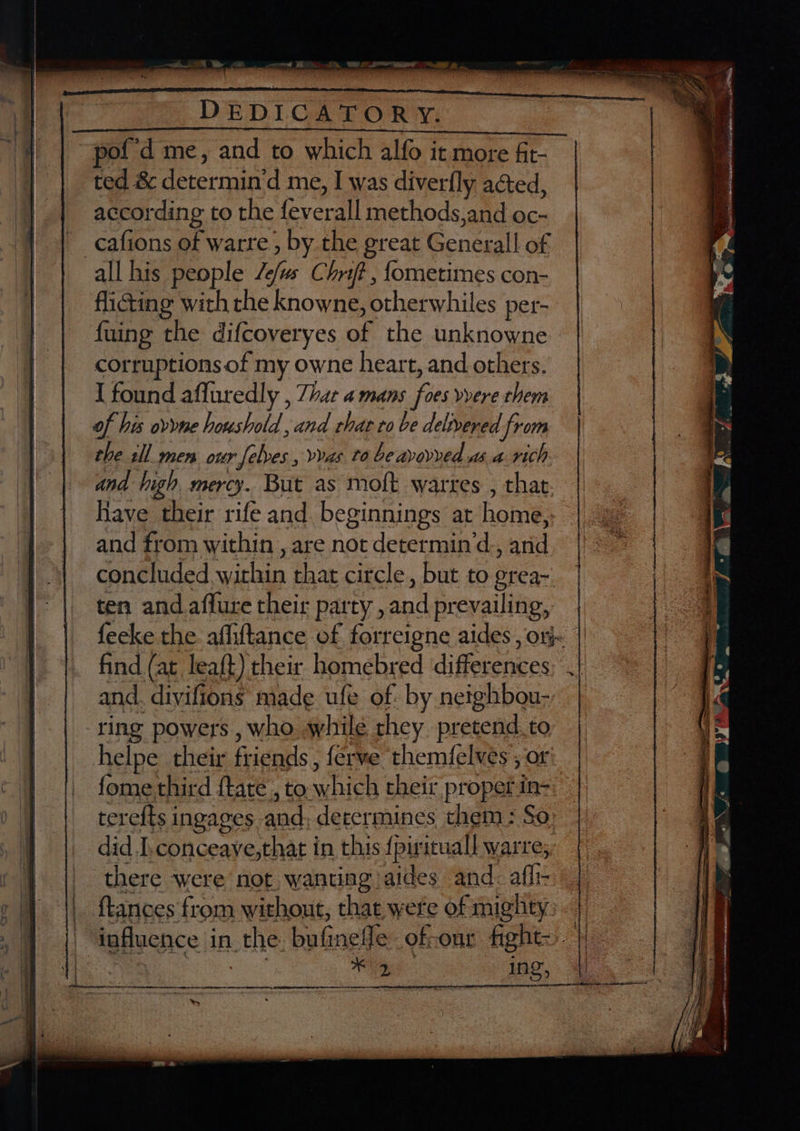 DEDICATORY.
poſ'd me, and to which alſo it more fit-
ted & determin'd me, I was diverſly acted,
according to the ſeverall methods,and oc-
caſions of warre, by the great Generall of
all his people Jeſus Chriſt, ſometimes con-
flicting with the knowne, otherwhiles per-
ſuing the diſcoveryes of the unknowne
corruptions of my owne heart, and others.
I found aſſuredly, That a mans foes vvere them
of his ovvne houshold, and that to be delivered from
the ill men our ſelves, vvas to be avovved as a rich
and high mercy. But as moſt warres, that
have their riſe and beginnings at home,
and from within, are not determin'd, and
concluded within that circle, but to grea-
ten and aſſure their party, and prevailing,
ſeeke the aſſiſtance of forreigne aides, or
find (at leaſt) their homebred differences
and diviſions made uſe of by neighbou-
ring powers, who while they pretend to
helpe their friends, ſerve themſelves, or
ſome third ſtate, to which their proper in-
tereſts ingages and determines them: So
did I conceave,that in this ſpirituall warre,
there were not wanting aides and aſſi-
ſtances from without, that were of mighty
influence in the buſineſſe of our fight-
* 2 ing,